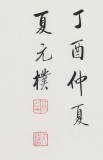 丁酉仲夏
夏元樸